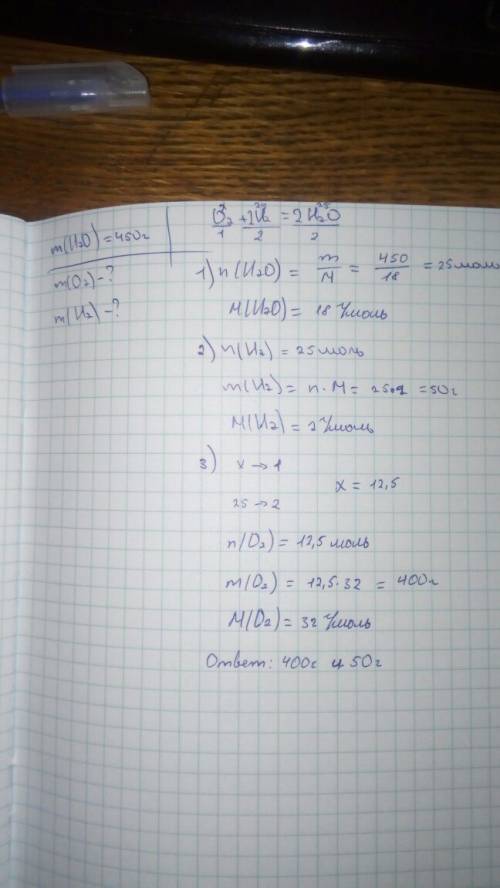 m(H₂O) = 450г
m(O₂) - ?
m(H₂) - ?
x 25 25
O₂ + 2H₂ = 2H₂O
1 2 2
1) n(H₂O) = m/M = 450/18 = 25моль
M(H₂O) = 18 г/моль
2) n(H₂) = 25моль
m(H₂) = n·M = 25·2 = 50г
M(H₂) = 2 г/моль
3) x → 1
x = 12,5
25 → 2
n(O₂) = 12,5 моль
m(O₂) = 12,5·32 = 400г
M(O₂) = 32 г/моль
Ответ: 400г и 50г